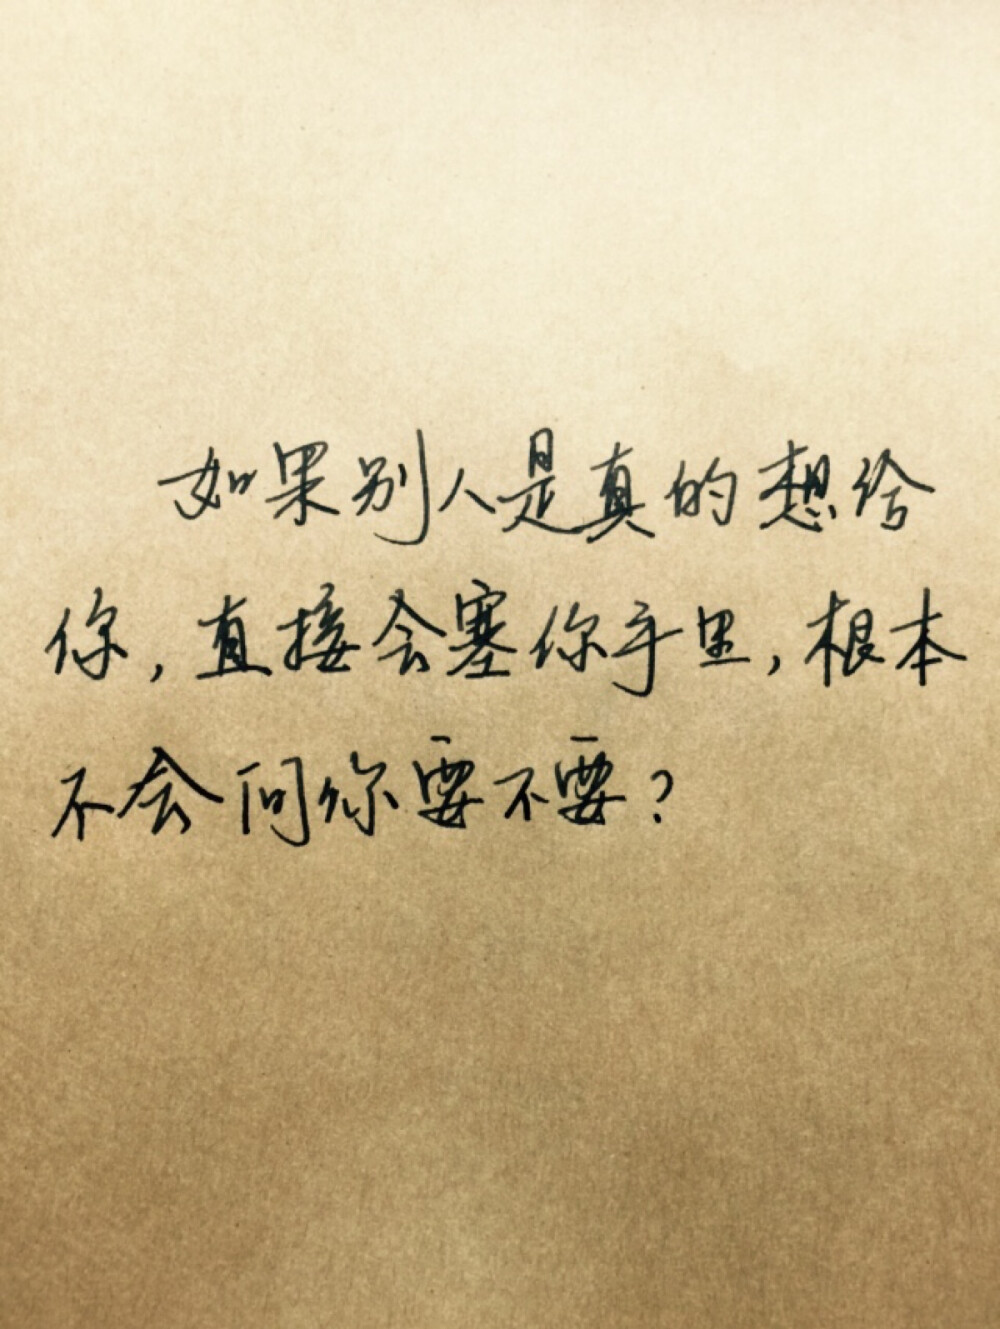 如果别人是真的想给
你，直接会塞你手里，根本
不会问你要不要？